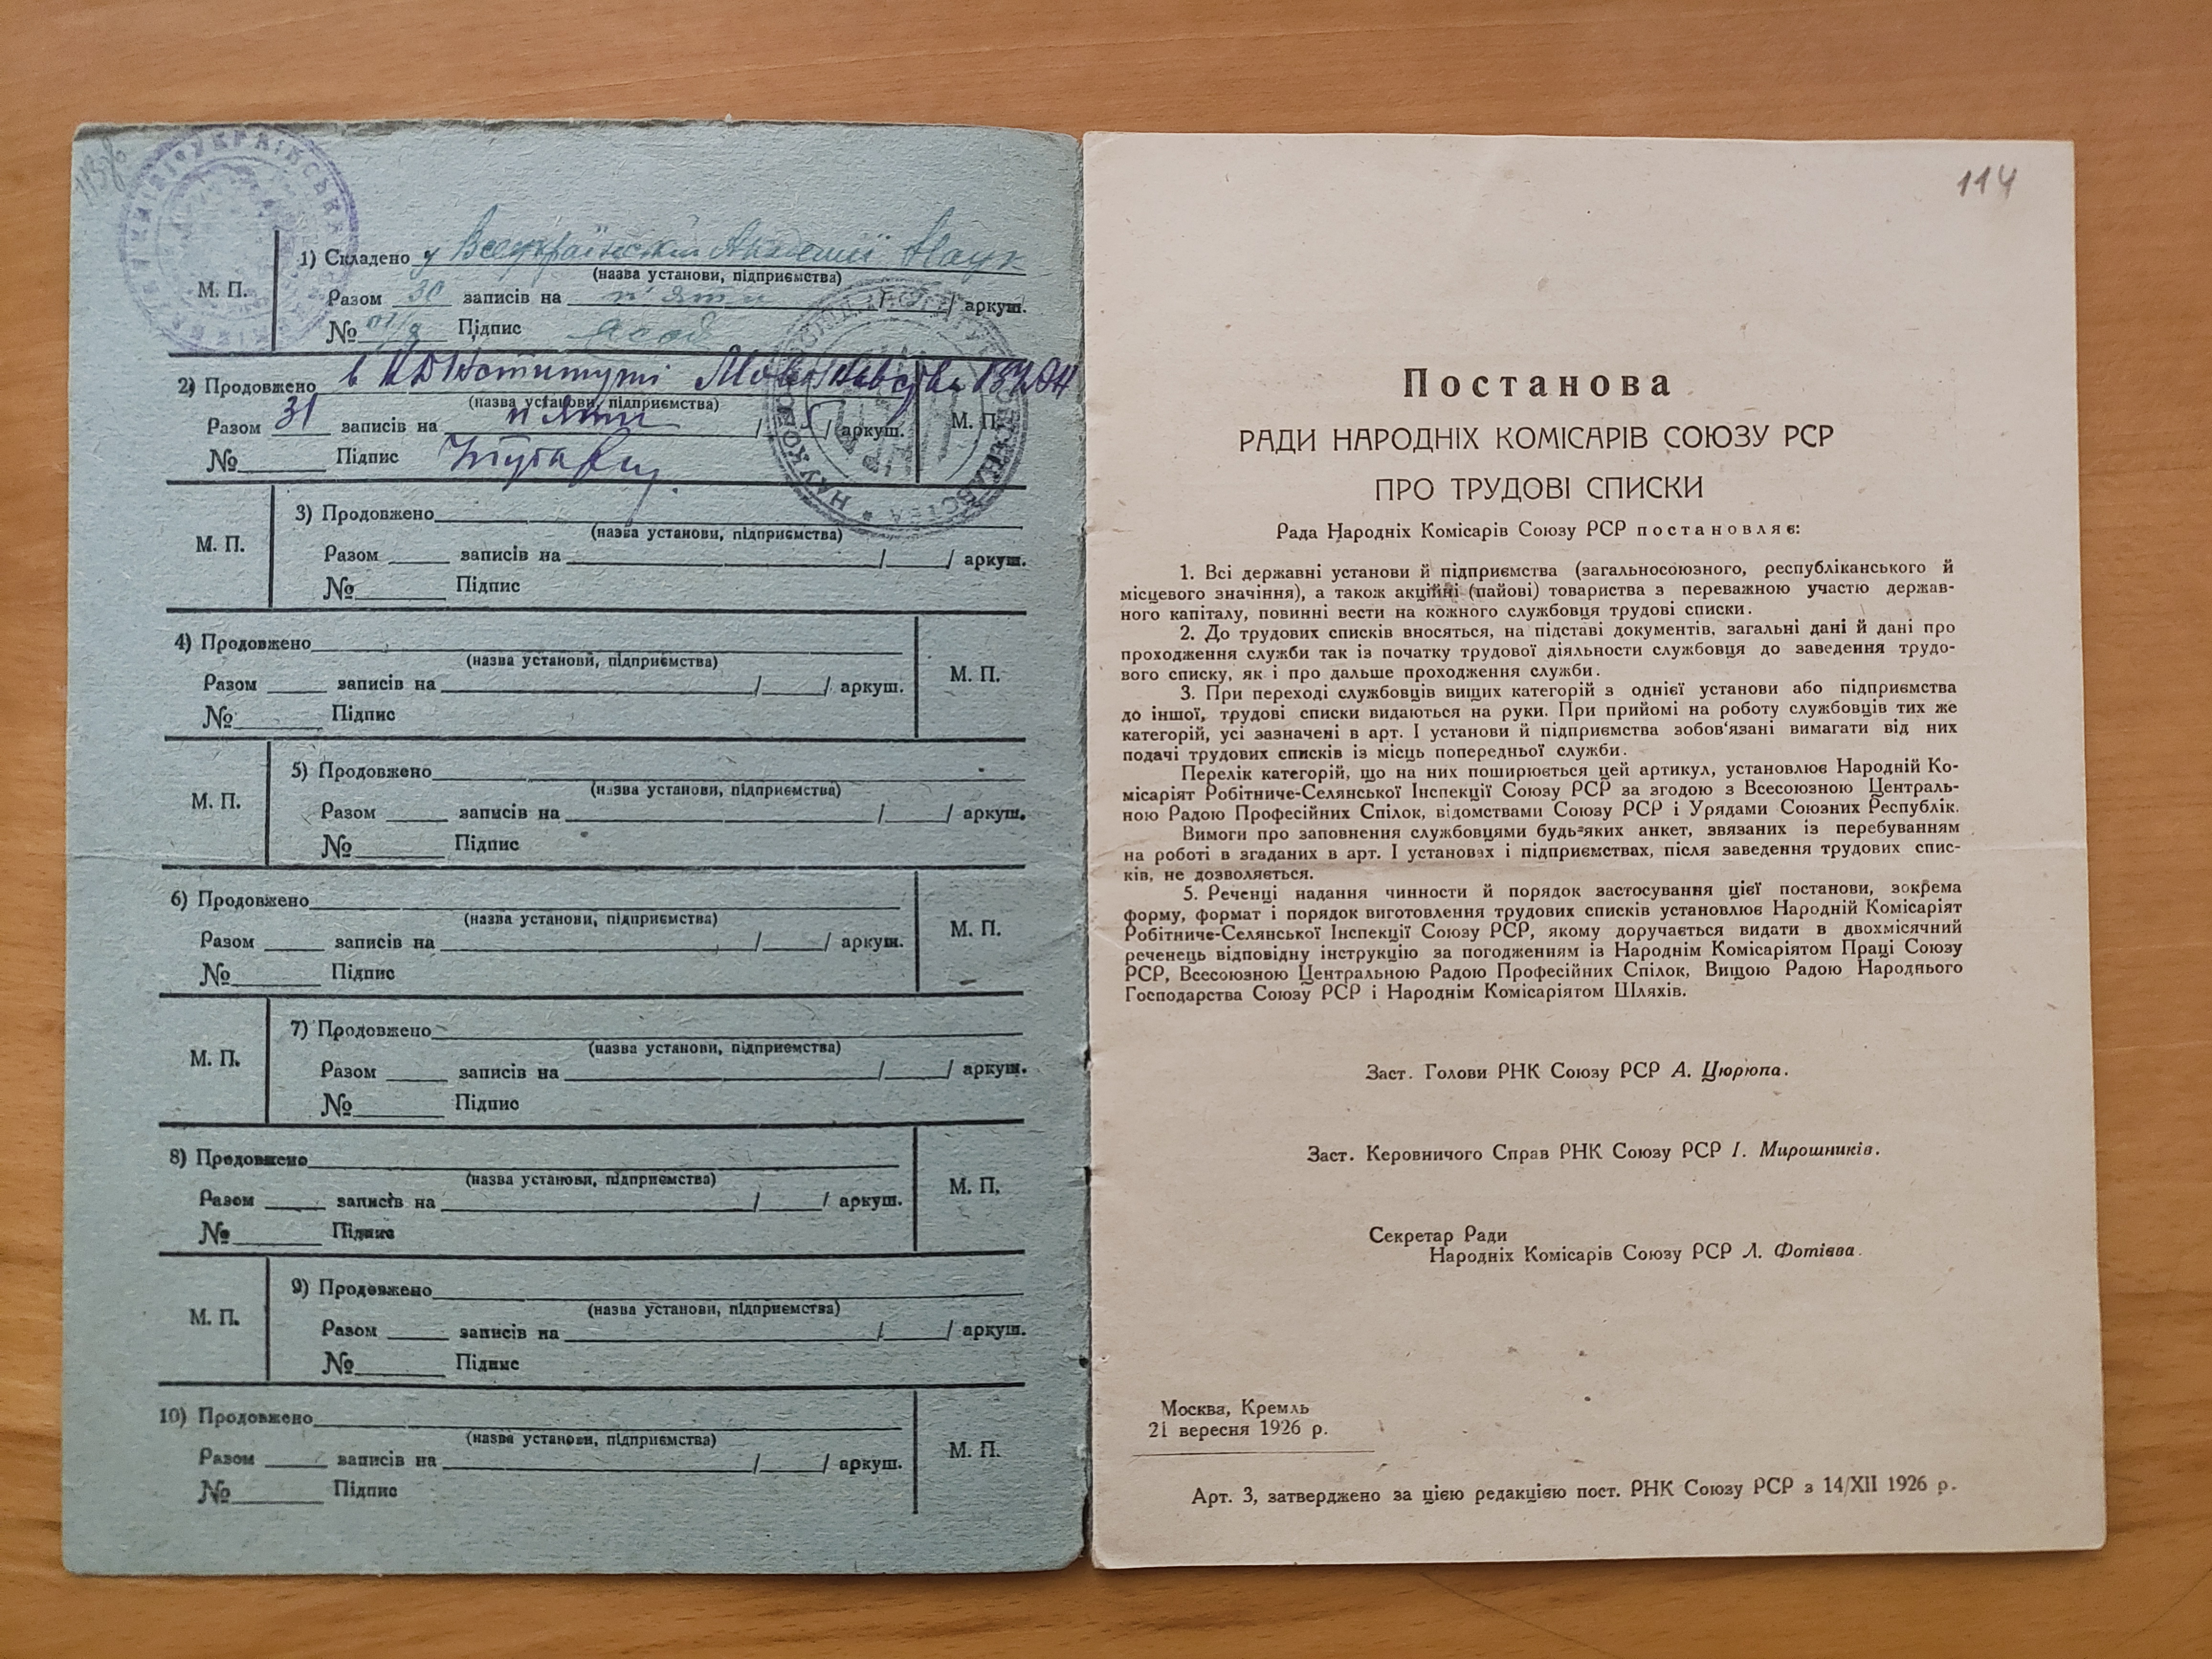 1) Складено у Всеукраїнській Академії Наук
(назва установи, підприємства)
М. П.
Разом 30 записів на п'яти / / аркуш.
№ Підпис
2) Продовжено в НДІнституті Мовознавства ВУАН
(назва установи, підприємства)
Разом 31 записів на п'яти /5/ аркуш. М. П.
№ Підпис
3) Продовжено
(назва установи, підприємства)
М. П.
Разом записів на / / аркуш.
№ Підпис
4) Продовжено
(назва установи, підприємства)
Разом записів на / / аркуш. М. П.
№ Підпис
5) Продовжено
(назва установи, підприємства)
М. П.
Разом записів на / / аркуш.
№ Підпис
6) Продовжено
(назва установи, підприємства)
Разом записів на / / аркуш. М. П.
№ Підпис
7) Продовжено
(назва установи, підприємства)
М. П.
Разом записів на / / аркуш.
№ Підпис
8) Продовжено
(назва установи, підприємства)
Разом записів на / / аркуш. М. П.
№ Підпис
9) Продовжено
(назва установи, підприємства)
М. П.
Разом записів на / / аркуш.
№ Підпис
10) Продовжено
(назва установи, підприємства)
Разом записів на / / аркуш. М. П.
№ Підпис
114
Постанова
РАДИ НАРОДНІХ КОМІСАРІВ СОЮЗУ РСР
ПРО ТРУДОВІ СПИСКИ
Рада Народніх Комісарів Союзу РСР постановляє:
1. Всі державні установи й підприємства (загальносоюзного, республіканського й
місцевого значіння), а також акційні (пайові) товариства з переважною участю держав-
ного капіталу, повинні вести на кожного службовця трудові списки.
2. До трудових списків вносяться, на підставі документів, загальні дані й дані про
проходження служби так із початку трудової діяльности службовця до заведення трудо-
вого списку, як і про дальше проходження служби.
3. При переході службовців вищих категорій з однієї установи або підприємства
до іншої, трудові списки видаються на руки. При прийомі на роботу службовців тих же
категорій, усі зазначені в арт. І установи й підприємства зобов'язані вимагати від них
подачі трудових списків із місць попередньої служби.
Перелік категорій, що на них поширюється цей артикул, установлює Народній Ко-
місаріят Робітниче-Селянської Інспекції Союзу РСР за згодою з Всесоюзною Централь-
ною Радою Професійних Спілок, відомствами Союзу РСР і Урядами Союзних Республік.
Вимоги про заповнення службовцями будь-яких анкет, звязаних із перебуванням
на роботі в згаданих в арт. І установах і підприємствах, після заведення трудових спис-
ків, не дозволяється.
5. Реченці надання чинности й порядок застосування цієї постанови, зокрема
форму, формат і порядок виготовлення трудових списків установлює Народній Комісаріят
Робітниче-Селянської Інспекції Союзу РСР, якому доручається видати в двохмісячний
реченець відповідну інструкцію за погодженням із Народнім Комісаріятом Праці Союзу
РСР, Всесоюзною Центральною Радою Професійних Спілок, Вищою Радою Народнього
Господарства Союзу РСР і Народнім Комісаріятом Шляхів.
Заст. Голови РНК Союзу РСР А. Цюрюпа.
Заст. Керовничого Справ РНК Союзу РСР І. Мирошників.
Секретар Ради
Народніх Комісарів Союзу РСР Л. Фотієва.
Москва, Кремль
21 вересня 1926 р.
Арт. 3, затверджено за цією редакцією пост. РНК Союзу РСР з 14/XII 1926 р.